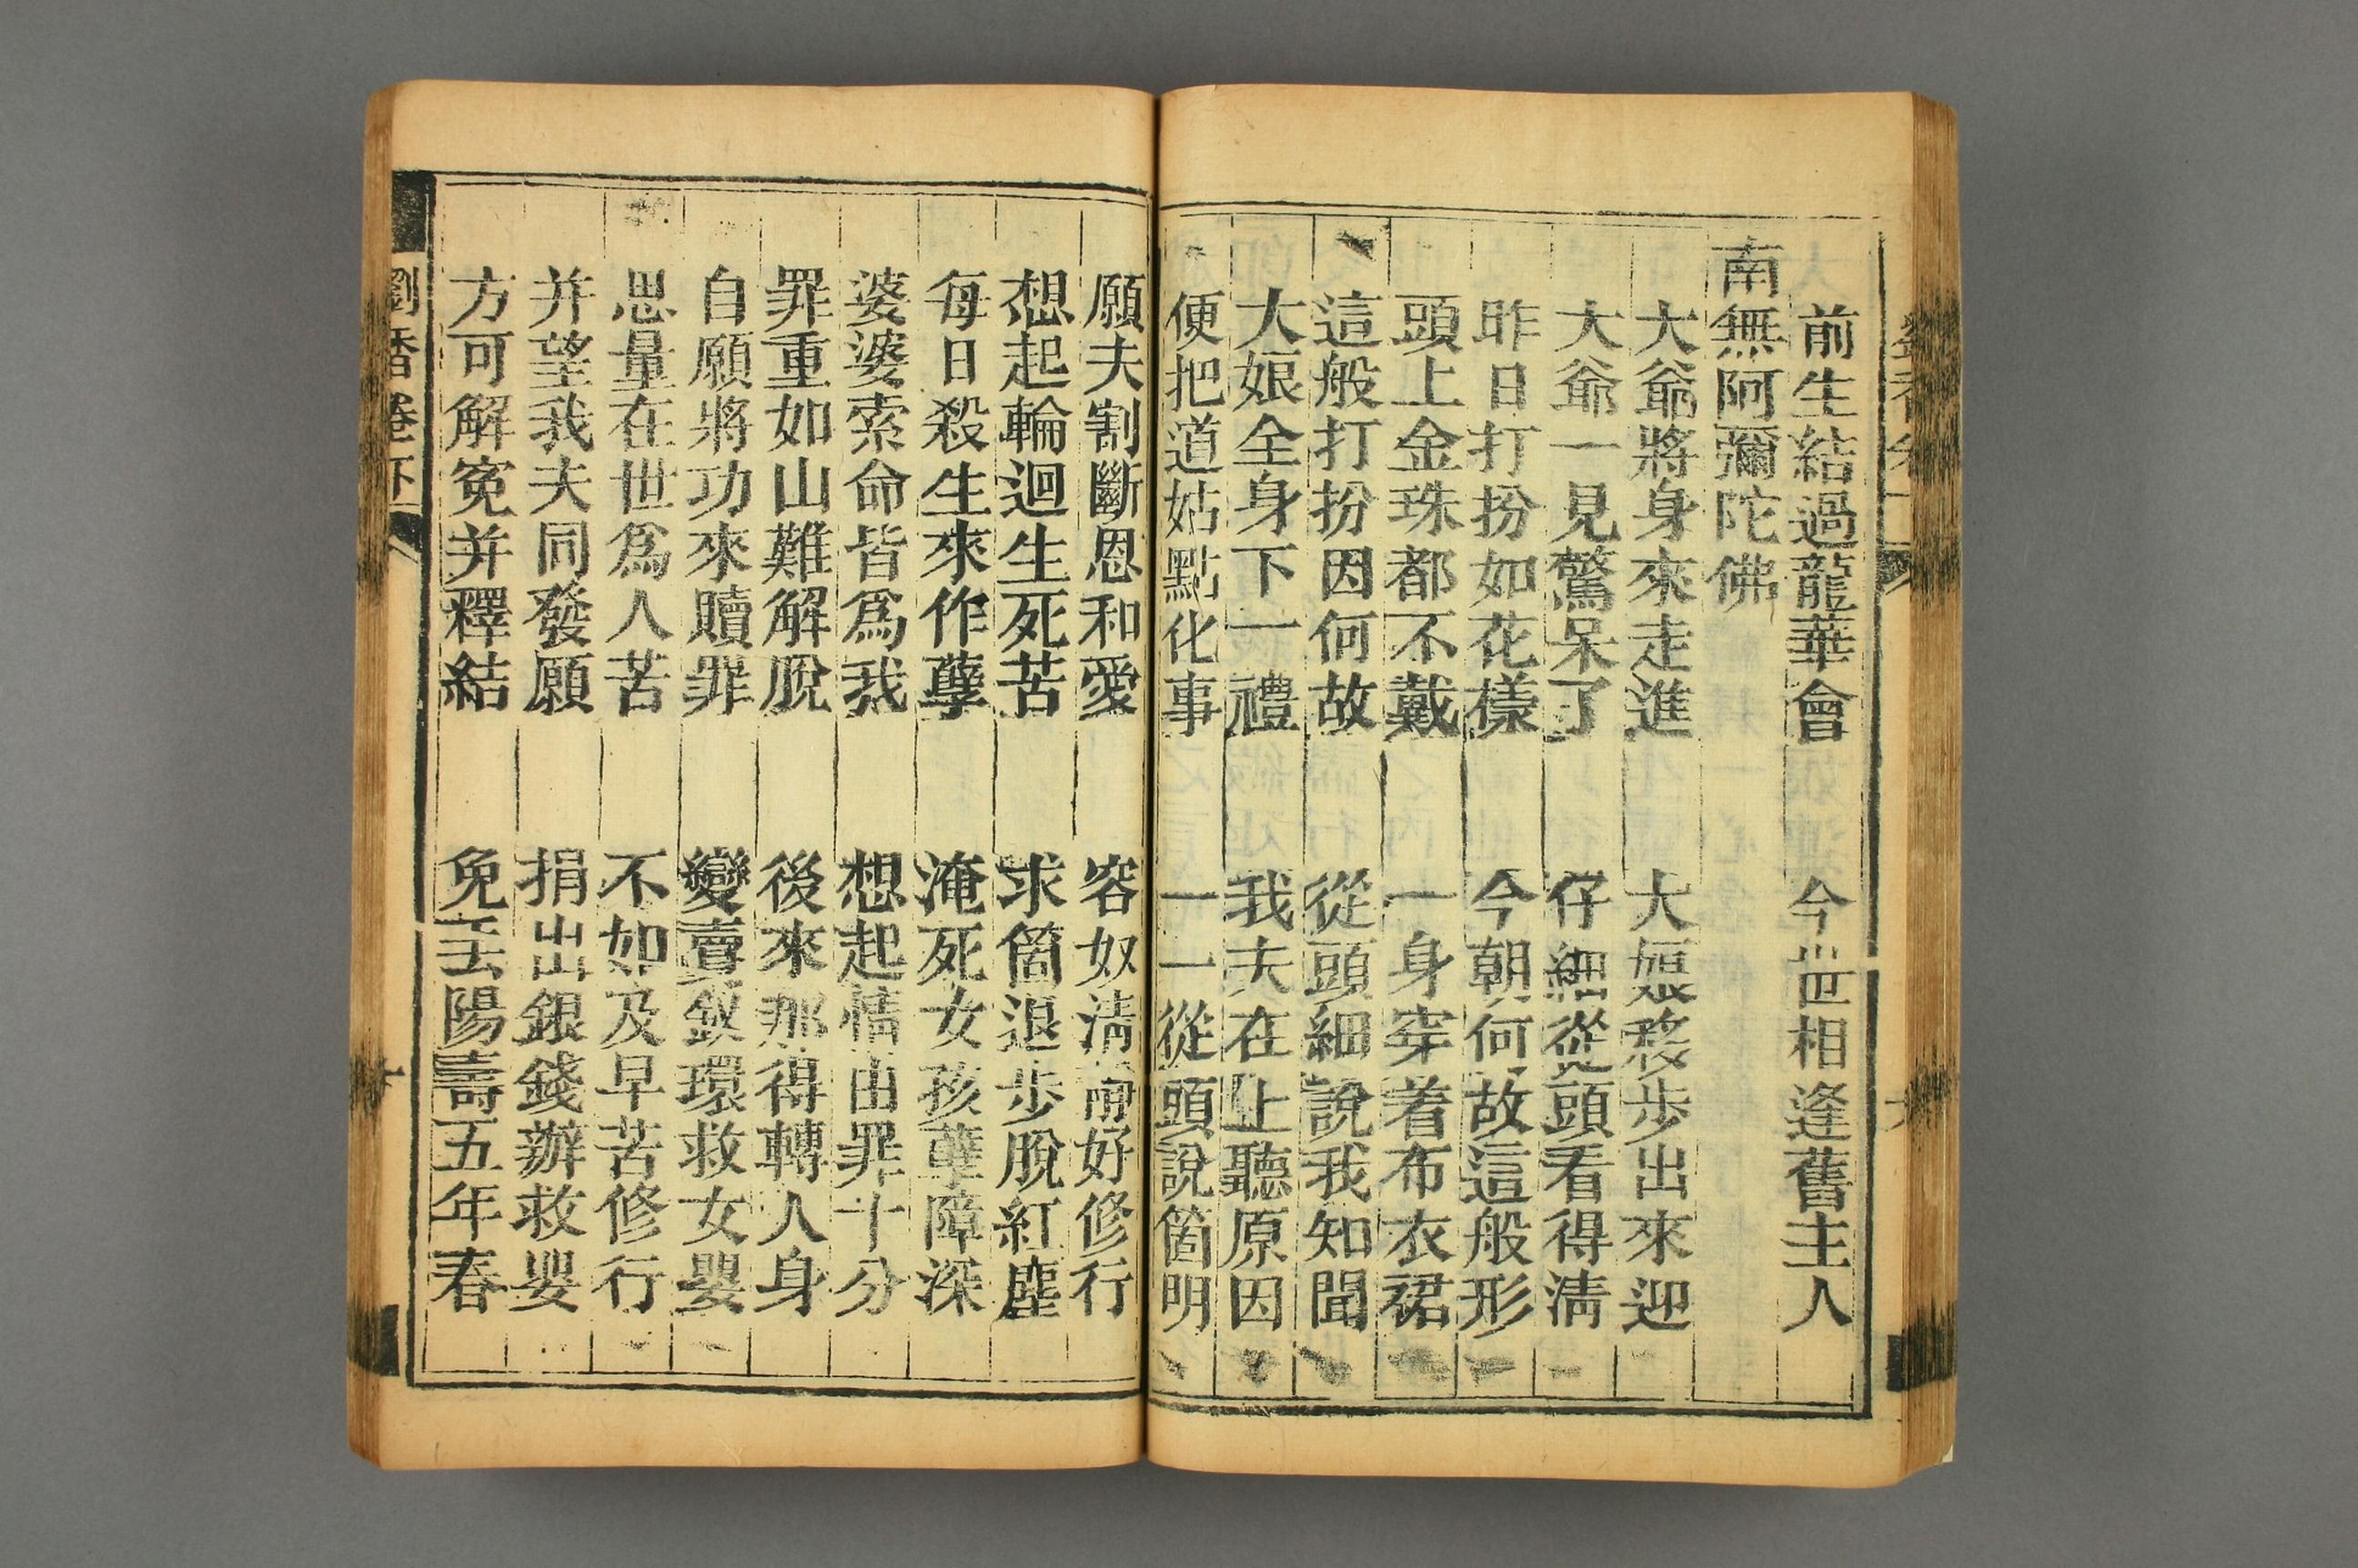 前生結過龍華會　今世相逢舊主人
南無阿彌陀佛
大爺將身來走進　大娘移步出來迎
大爺一見驚呆了　仔細從頭看得清
昨日打扮如花樣　今朝何故這般形
頭上金珠都不戴　一身穿着布衣裙
這般打扮因何故　從頭細說我知聞
大娘全身下一禮　我夫在上聽原因
便把道姑點化事　一一從頭說箇明
願夫割斷恩和愛　容奴清齋好修行
想起輪迴生死苦　求箇退步脫紅塵
每日殺生來作孽　淹死女孩孽障深
婆婆索命皆爲我　想起情由罪十分
罪重如山難解脫　後來那得轉人身
自願將功來贖罪　變賣釵環救女嬰
思量在世爲人苦　不如及早苦修行
并望我夫同發願　捐出銀錢辦救嬰
方可解寃并釋結　免去陽壽五年春
劉香卷下